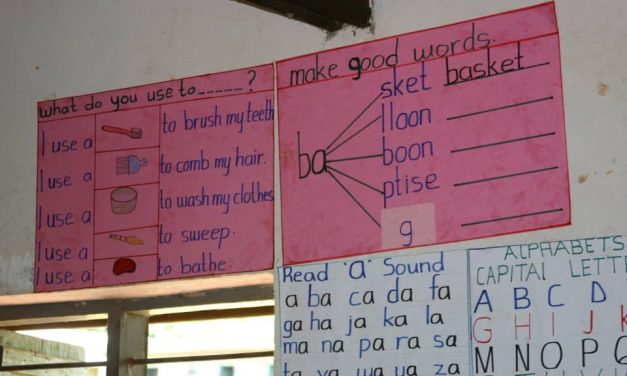 What do you use to_____?
I use a to brush my teeth
I use a to comb my hair.
I use a to wash my clothes
I use a to sweep.
I use a to bathe.
make good words.
ba
sket basket
lloon
boon
ptise
g
Read 'a' Sound
a ba ca da fa
ga ha ja ka la
ma na pa ra sa
ta va wa ya za
ALPHABETS
CAPITAL LETT
A B C D
G H I J K
M N O P Q